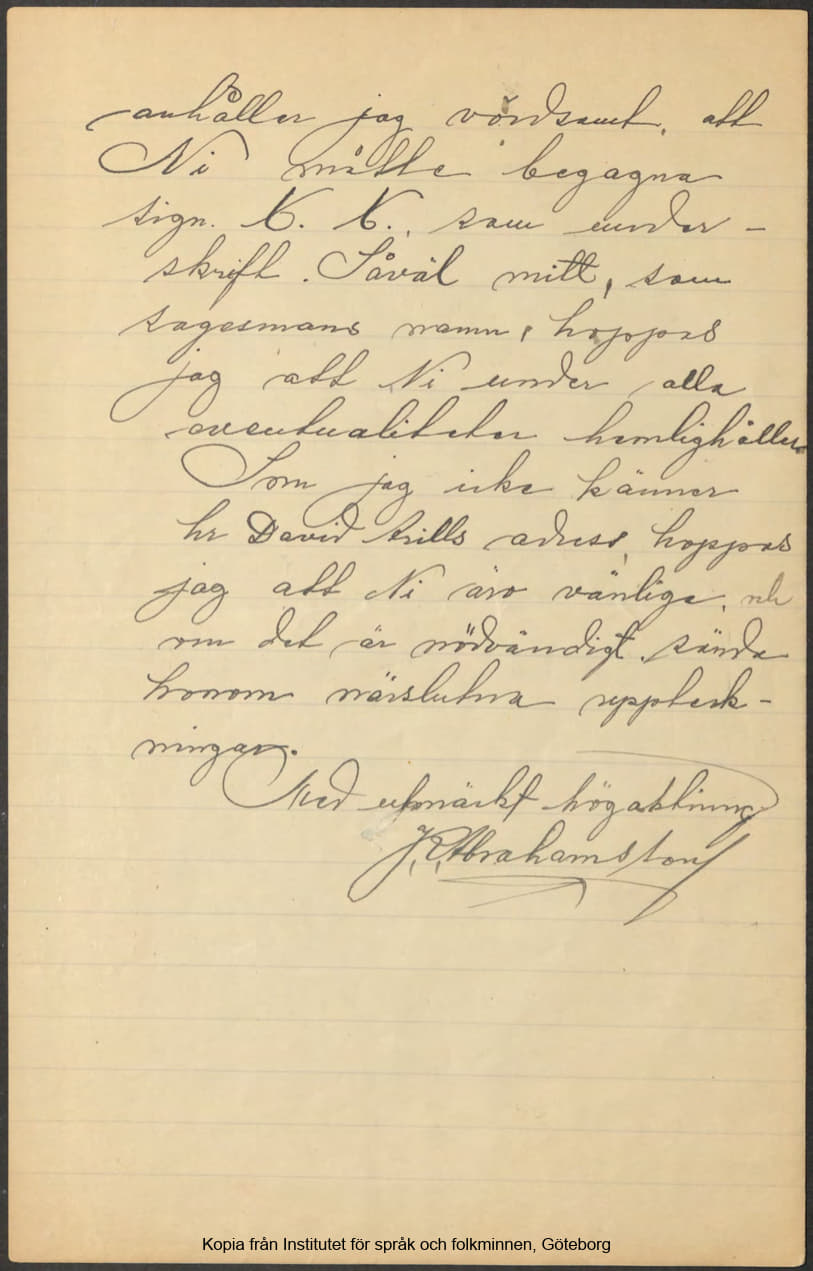 anhåller jag vördsamt, att
Ni måtte begagna
sign. K. K., som under-
skrift. Såväl mitt, som
sagesmans namn, hoppas
jag att Ni under alla
eventualiteter hemlighåller
Som jag icke känner
hr David Arills adress, hoppas
jag att Ni äro vänliga, och
om det är nödvändigt sända
honom närslutna uppteck-
ningar.
Med utmärkt högaktning
J. R. Abrahamsson
Kopia från Institutet för språk och folkminnen, Göteborg